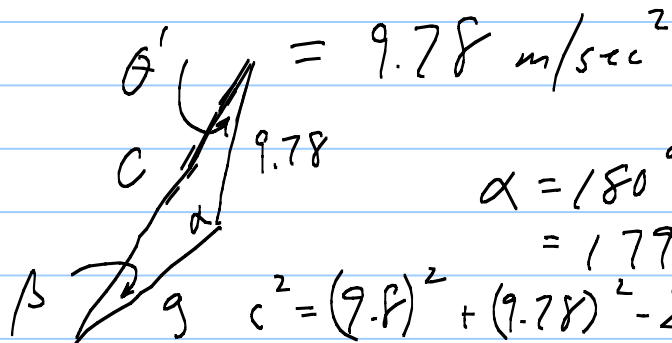 θ' = 9.78 m/sec²
C 9.78
α = 180
α
= 179
β g c² = (9.8)² + (9.78)² - 2